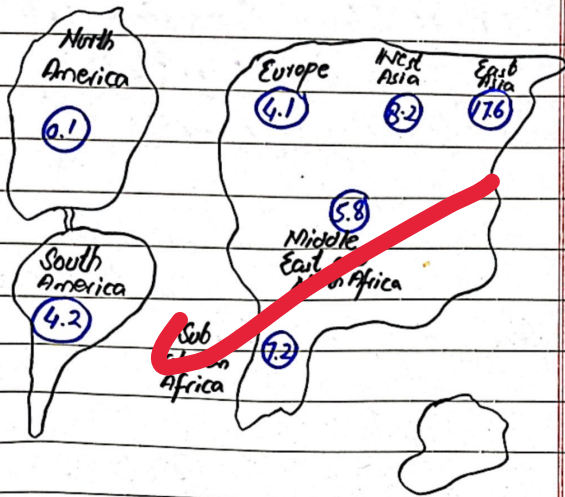 North
America
0.1
Europe
4.1
West
Asia
East
Asia
17.6
5.8
Middle
East
Africa
South
America
4.2
Sub
Africa
7.2